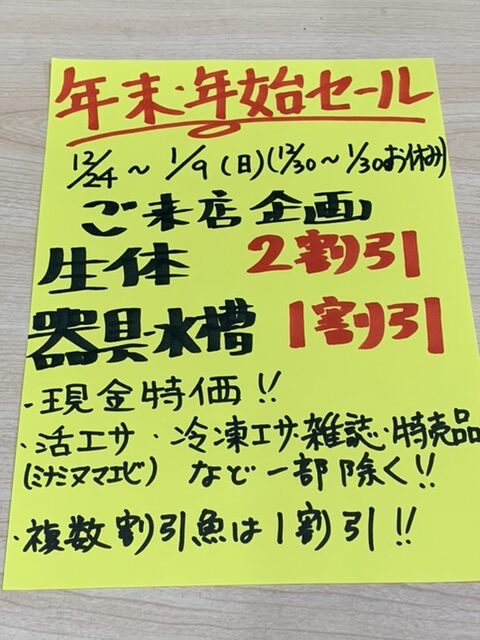 年末・年始セール
12/24～1/9(日)(12/30～1/3お休み)
ご来店企画
生体 2割引
器具・水槽 1割引
・現金特価!!
・活エサ・冷凍エサ・雑誌・特売品
(ミナミヌマエビ) など一部除く!!
・複数割引魚は1割引!!